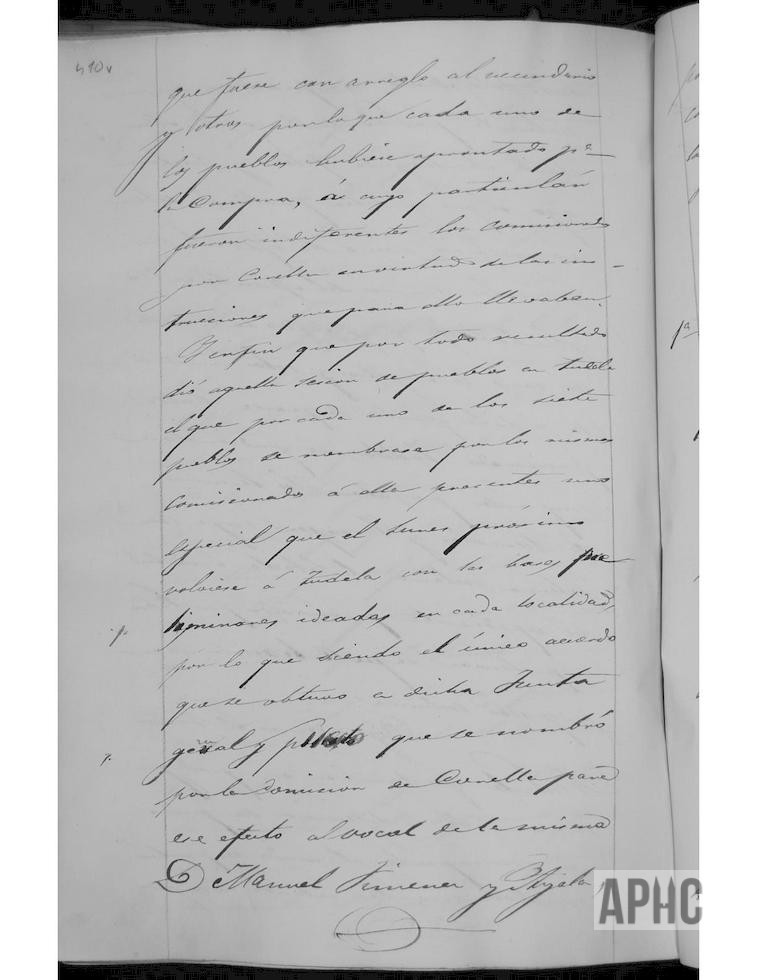 410v
que fuese con arreglo al vecindario
y otros por lo que cada uno de
los pueblos hubiese aprontado pª
la Compra, á cuyo particular
fueron indiferentes los comisionados
por Corella en virtud de las ins-
trucciones que para ello llevaban.
Y en fin que por todo resultado
dió aquella sesion de pueblos en Tudela
el que por cada uno de los siete
pueblos se nombrase por los mismos
comisionados á ella presentes uno
especial que el lunes próximo
volviese á Tudela con las bases pre
liminares ideadas en cada localidad,
por lo que siendo el único acuerdo
que se obtuvo en dicha Junta
general y que se nombró
por la Comision de Corella para
ese efecto al vocal de la misma
D. Manuel Jimenez y
1ª
APHC